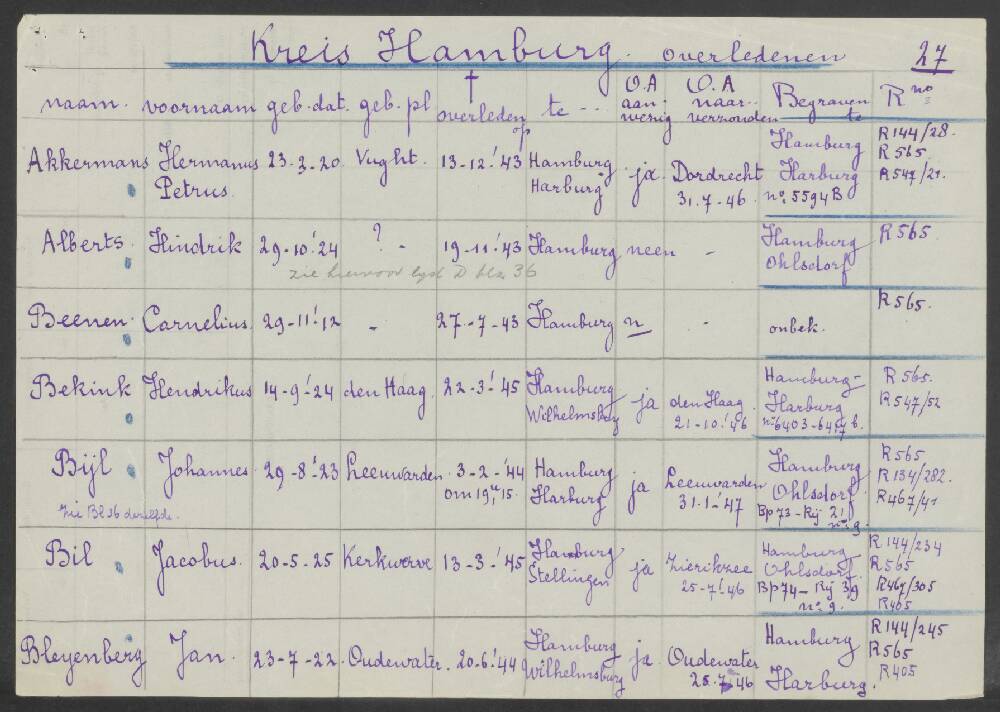 Kreis Hamburg. overledenen 27
naam. voornaam geb. dat. geb. pl † overleden op te -- O.A aanwezig O.A naar verzonden Begraven te R no
Akkermans Hermanus Petrus. 23-3-20. Vught. 13-12-'43 Hamburg Harburg ja. Dordrecht 31.7-46 Hamburg Harburg no. 5594 B R144/28. R565 R547/21.
Alberts. Hindrik 29-10-'24 ? - 19-11-'43 Hamburg neen - Hamburg Ohlsdorf R565.
zie hiervoor lijst D blz 36
Beenen. Carnelius. 29-11-'12 - 27-7-43 Hamburg n - onbek. R565.
Bekink Hendrikus 14-9-'24 den Haag. 22-3-'45 Hamburg Wilhelmsburg ja den Haag. 21-10-'46 Hamburg- Harburg no 6403-6417 b. R565. R547/52
Bijl Johannes 29-8-'23 Leeuwarden. 3-2-'44 om 19 u 15. Hamburg Harburg ja Leeuwarden 31.1-'47 Hamburg Ohlsdorf Bp73-Rij 21 no. 9. R565. R134/282. R467/41
zie Bl 26 dezelfde.
Bil Jacobus. 20-5-25 Kerkwerve 13-3-'45 Hamburg Stellingen ja Zierikzee 25-7-'46 Hamburg Ohlsdorf. Bp74-Rij 39 no. 9. R144/234 R565 R467/305 R405
Bleyenberg Jan. 23-7-22. Oudewater. 20-6-'44 Hamburg Wilhelmsburg ja. Oudewater 25.7-46 Hamburg Harburg. R144/245 R565 R405